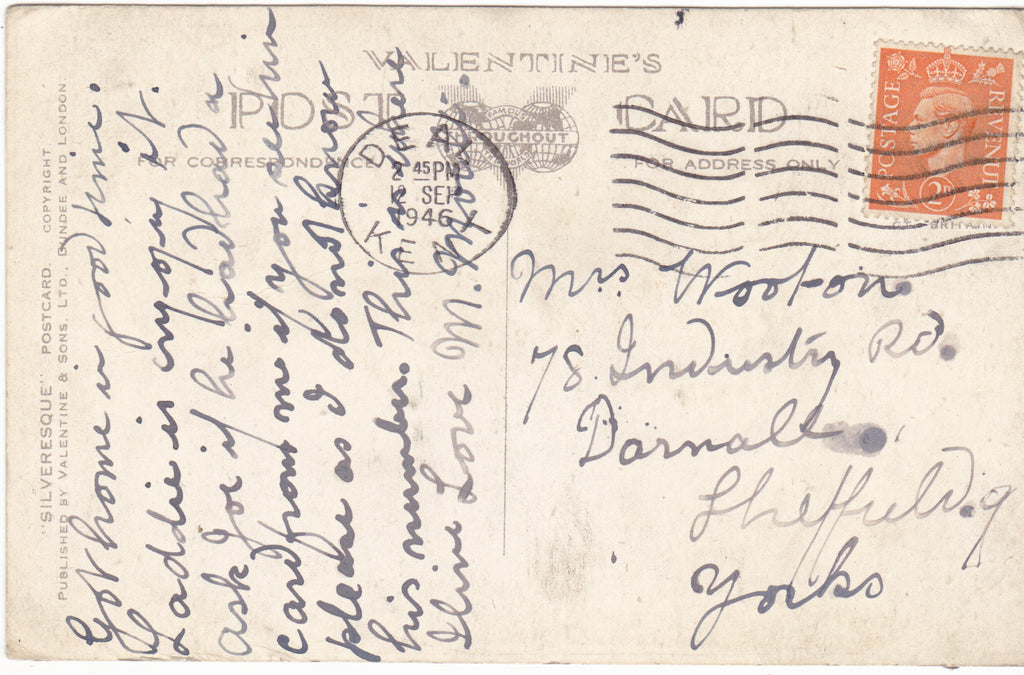 VALENTINE'S
POST CARD
FAMOUS
THROUGHOUT
FOR CORRESPONDENCE
FOR ADDRESS ONLY
DEAL
2 45 PM
12 SEP
1946
KENT
POSTAGE
REVENUE
2D
"SILVERESQUE" POSTCARD. COPYRIGHT
PUBLISHED BY VALENTINE & SONS, LTD., DUNDEE AND LONDON
Got home in good time.
Laddie is enjoying it.
ask Joe if he has had a
card from me if you see him
please as I do not know
his number. This is where
I live Love M. Moor.
Mrs Wooton
78 Industry Rd.
Darnall.
Sheffield. 9
Yorks